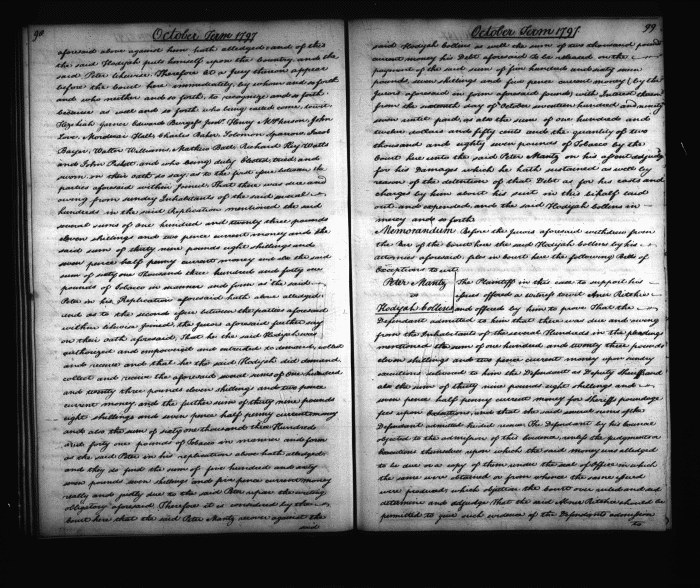 98
October Term 1797
aforesaid alone against him hath alledged and of this
the said Hodijah puts himself upon the Country and the
said Peter likewise Therefore let a Jury thereon appear
before the Court here immediately by whom and so forth
and who neither and so forth to recognize and so forth
because as well and so forth who being called come to wit
Hezekiah Edward Henry McPherson John
Love Mordecai Hall Charles Baker Solomon Sparrow Jacob
Walter Williams Mathias Richard Key Watts
and John and who being duly Elected tried and
sworn on their oath do say as to the first issue between the
parties aforesaid within Joined That there was due and
owing from sundry Inhabitants of the said several
hundreds in the said Replication mentioned the said
several sums of one hundred and twenty three pounds
eleven shillings and two pence current money and the
said sum of thirty nine pounds eight shillings and
seven pence half penny current money and also the said
sum of sixty one Thousand three hundred and forty one
pounds of Tobacco in manner and form as the said
Peter in his Replication aforesaid hath alone alledged
and as to the second issue between the parties aforesaid
within likewise joined the Jurors aforesaid further say
on their oath aforesaid That he the said Hodijah was
authorized and empowered and intituled to demand, collect
and receive and that he the said Hodijah did demand
collect and receive the aforesaid several sums of One hundred
and twenty three pounds eleven shillings and two pence
current money and the further sum of thirty nine pounds
eight shillings and seven pence half penny current money
and also the sum of sixty one thousand three Hundred
and forty one pounds of Tobacco in manner and form
as the said Peter in his replication above hath alledged
and they do find the sum of five hundred and sixty
seven pounds seven shillings and five pence current money
really and justly due to the said Peter upon the writing
obligatory aforesaid Therefore it is considered by the
Court here that the said Peter Mantz recover against the
said
October Term 1797
99
said Hodijah Collens as well the sum of two thousand pounds
current money his Debt aforesaid to be released on the
payment of the said sum of five hundred and sixty seven
pounds seven shillings and five pence current money (by the
Jurors aforesaid in form aforesaid found) with Interest thereon
from the day of October seventeen hundred and ninety
seven until paid, as also the sum of one hundred and
twelve dollars and fifty cents and the quantity of two
thousand and eighty seven pounds of Tobacco by the
Court here unto the said Peter Mantz on his assent adjudged
for his Damages which he hath sustained as well by
reason of the detention of that Debt as for his costs and
charges by him about his suit in this behalf laid
out and expended, and the said Hodijah Collens in
mercy and so forth
Memorandum Before the Jurors aforesaid withdrew from
the Bar of the Court here the said Hodijah Collens by his
attornies aforesaid files in Court here the following Bills of
Exception to wit
Peter Mantz The Plaintiff in this case to support his
vs issues offered a witness to wit Abner Ritchie
Hodijah Collens and offered by him to prove That the
Defendant admitted to him that there was due and owing
from the Inhabitants of the several Hundreds in the pleadings
mentioned the sum of one hundred and twenty three pounds
eleven shillings and two pence current money upon sundry
executions delivered to him the Defendant as Deputy Sheriff and
also the sum of thirty nine pounds eight shillings and
seven pence half penny current money for Sheriff poundage
fees upon Executions, and that the said several sums the
Defendant admitted he did receive The Defendant by his Counsel
objected to the admission of this Evidence unless the Judgments or
Executions themselves upon which the said money was alledged
to be due or a copy of them under the seal of Office in which
the same were obtained or from whence the same issued
were produced which objection the Court over ruled and did
determine and adjudge That the said Abner Ritchie should be
permitted to give such evidence of the Defendants admission
to